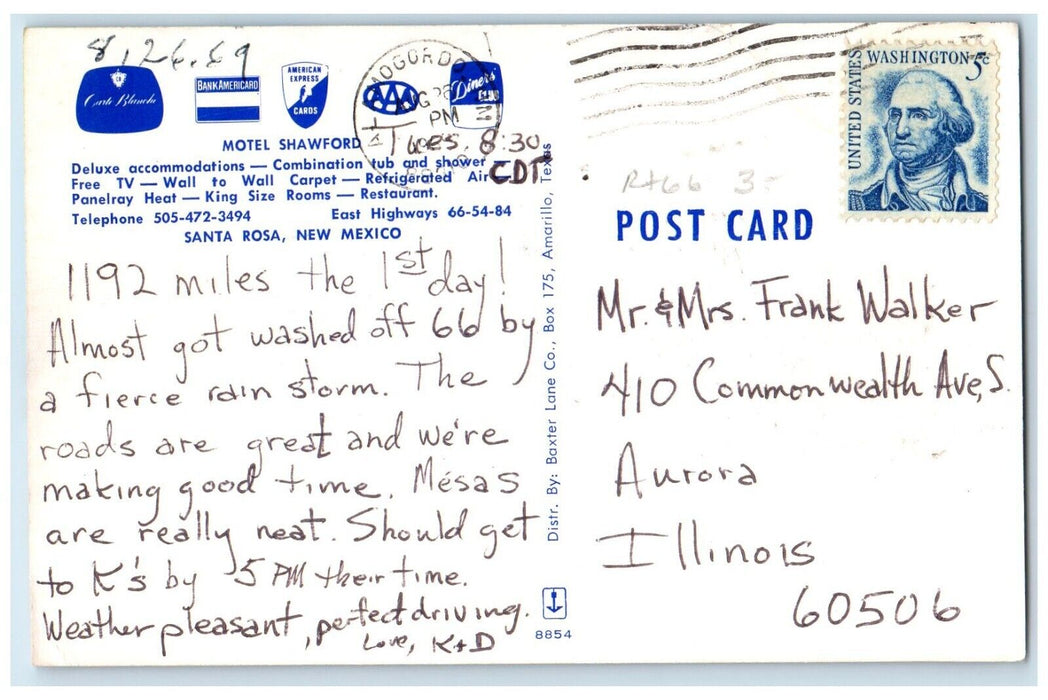 8,26.69
Carte Blanche
BANKAMERICARD
AMERICAN
EXPRESS
CARDS
AAA
Diners'
ALAMOGORDO
AUG 26
PM
Tues. 8:30
CDT
MOTEL SHAWFORD
Deluxe accommodations — Combination tub and shower —
Free TV — Wall to Wall Carpet — Refrigerated Air —
Panelray Heat — King Size Rooms — Restaurant.
Telephone 505-472-3494 East Highways 66-54-84
SANTA ROSA, NEW MEXICO
1192 miles the 1st day!
Almost got washed off 66 by
a fierce rain storm. The
roads are great and we're
making good time. Mésas
are really neat. Should get
to K's by 5 PM their time.
Weather pleasant, perfect driving.
Love, K+D
Distr. By: Baxter Lane Co., Box 175, Amarillo, Texas
8854
UNITED STATES
WASHINGTON 5c
Rt 66 3-
POST CARD
Mr. & Mrs. Frank Walker
410 Commonwealth Ave, S.
Aurora
Illinois
60506